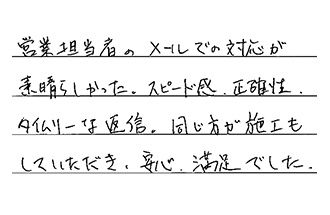 営業担当者のメールでの対応が
素晴らしかった。スピード感、正確性、
タイムリーな返信。同じ方が施工も
していただき、安心、満足でした。